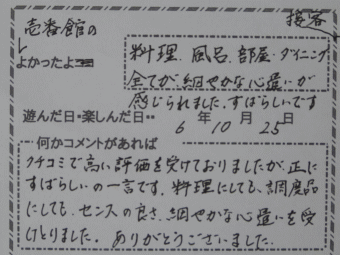 壱番館の
接客
よかったよ
料理、風呂、部屋・ダイニング
全てが細やかな心遣いが
感じられました。すばらしいです
遊んだ日・楽しんだ日‥
6年10月25日
何かコメントがあれば
クチコミで高い評価を受けておりましたが、正に
すばらしいの一言です。料理にしても、調度品
にしても、センスの良さ、細やかな心遣いを受
けとりました。ありがとうございました。